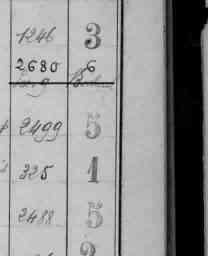 1246 3
2680 6
2499 5
325 1
2488 5